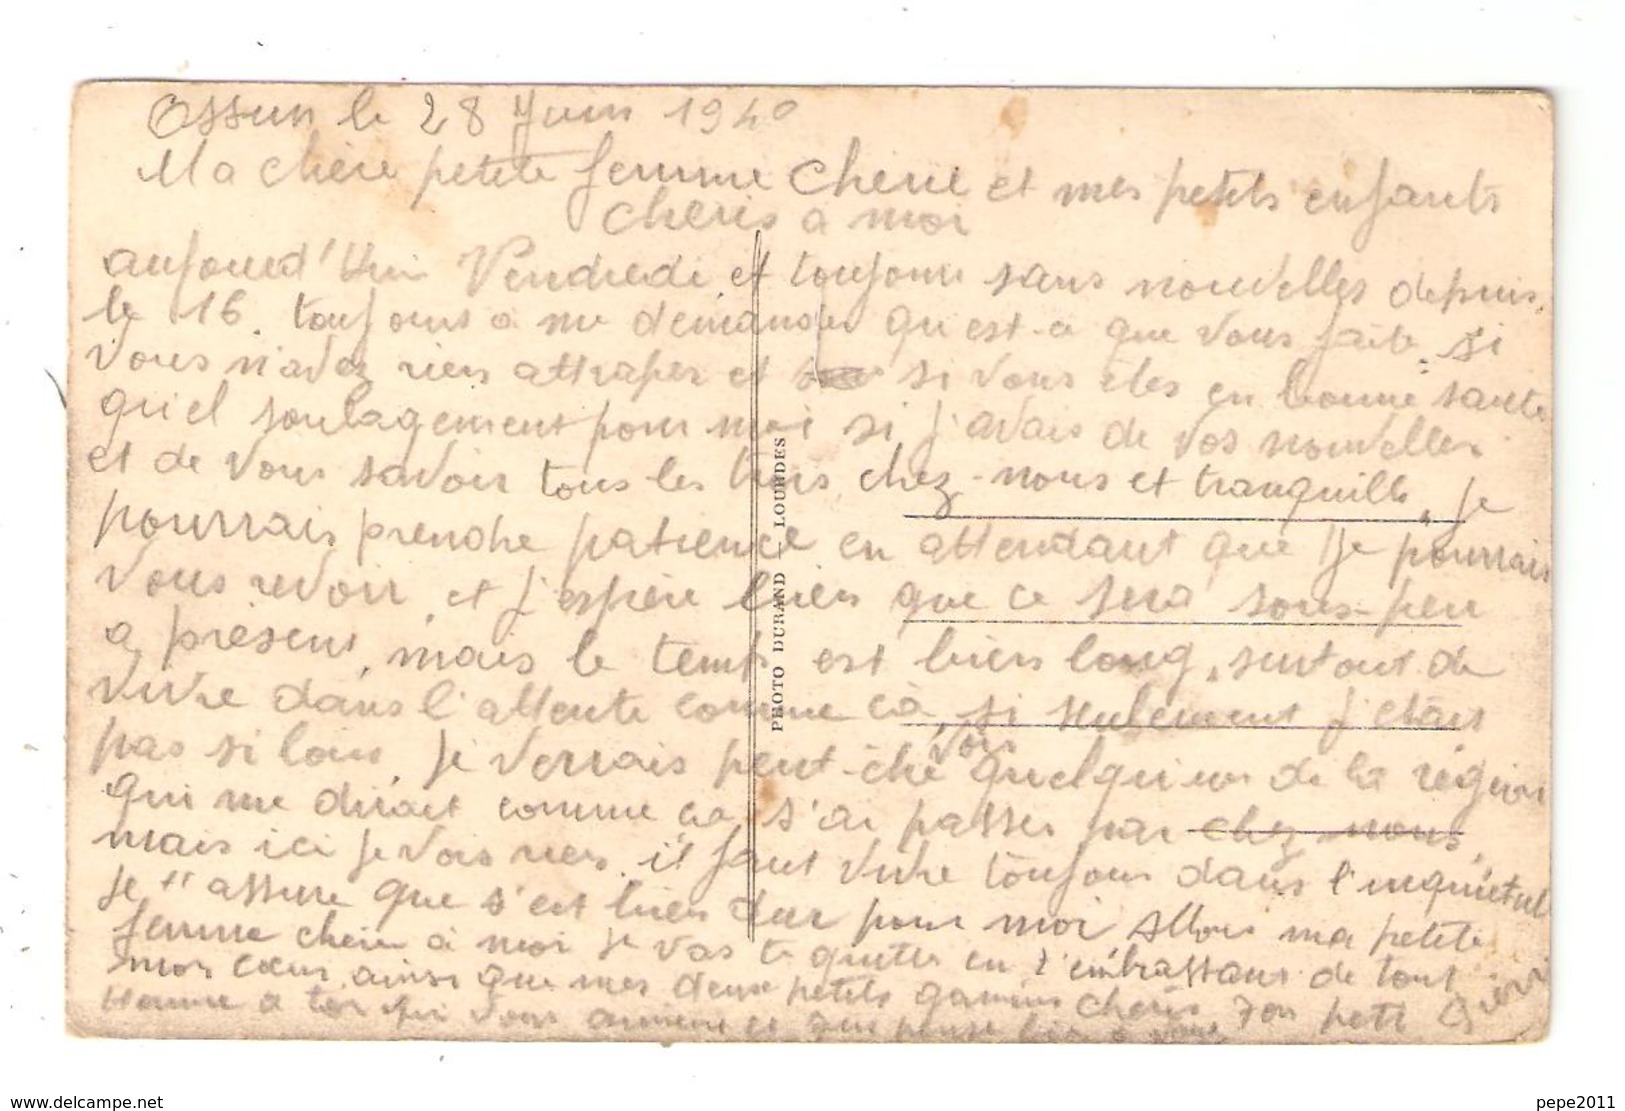 Ossun le 28 Juin 1940
Ma chère petite femme Cherie et mes petits enfants
cheris a moi
aujourd'hui Vendredi et toujours sans nouvelles depuis
le 16. toujours a me demander qu'est-ce que vous faite, si
vous n'avez rien attraper et si vous êtes en bonne santé
qu'el soulagement pour moi si j'avais de vos nouvelles
et de vous savoir tous les trois chez-nous et tranquille, je
pourrais prendre patience en attendant que je pourrais
vous revoir, et j'espère bien que ce sera sous-peu
a présent, mais le temps est bien long, surtout de
vivre dans l'attente comme cà, si seulement j'etais
pas si loin, je verrais peut-être vous quelqu'un de la région
qui me dirait comme ca s'ai passer par chez nous,
mais ici je vois rien, il faut vivre toujour dans l'inquiétud
je t'assure que s'est bien dur pour moi Allons ma petite
femme cherie a moi je vas te quitter en t'embrassant de tout
mon cœur ainsi que mes deux petits gamins cheris Ton petit
Homme a toi qui vous aime et qui pense bien a vous
PHOTO DURAND - LOURDES
www.delcampe.net
pepe2011